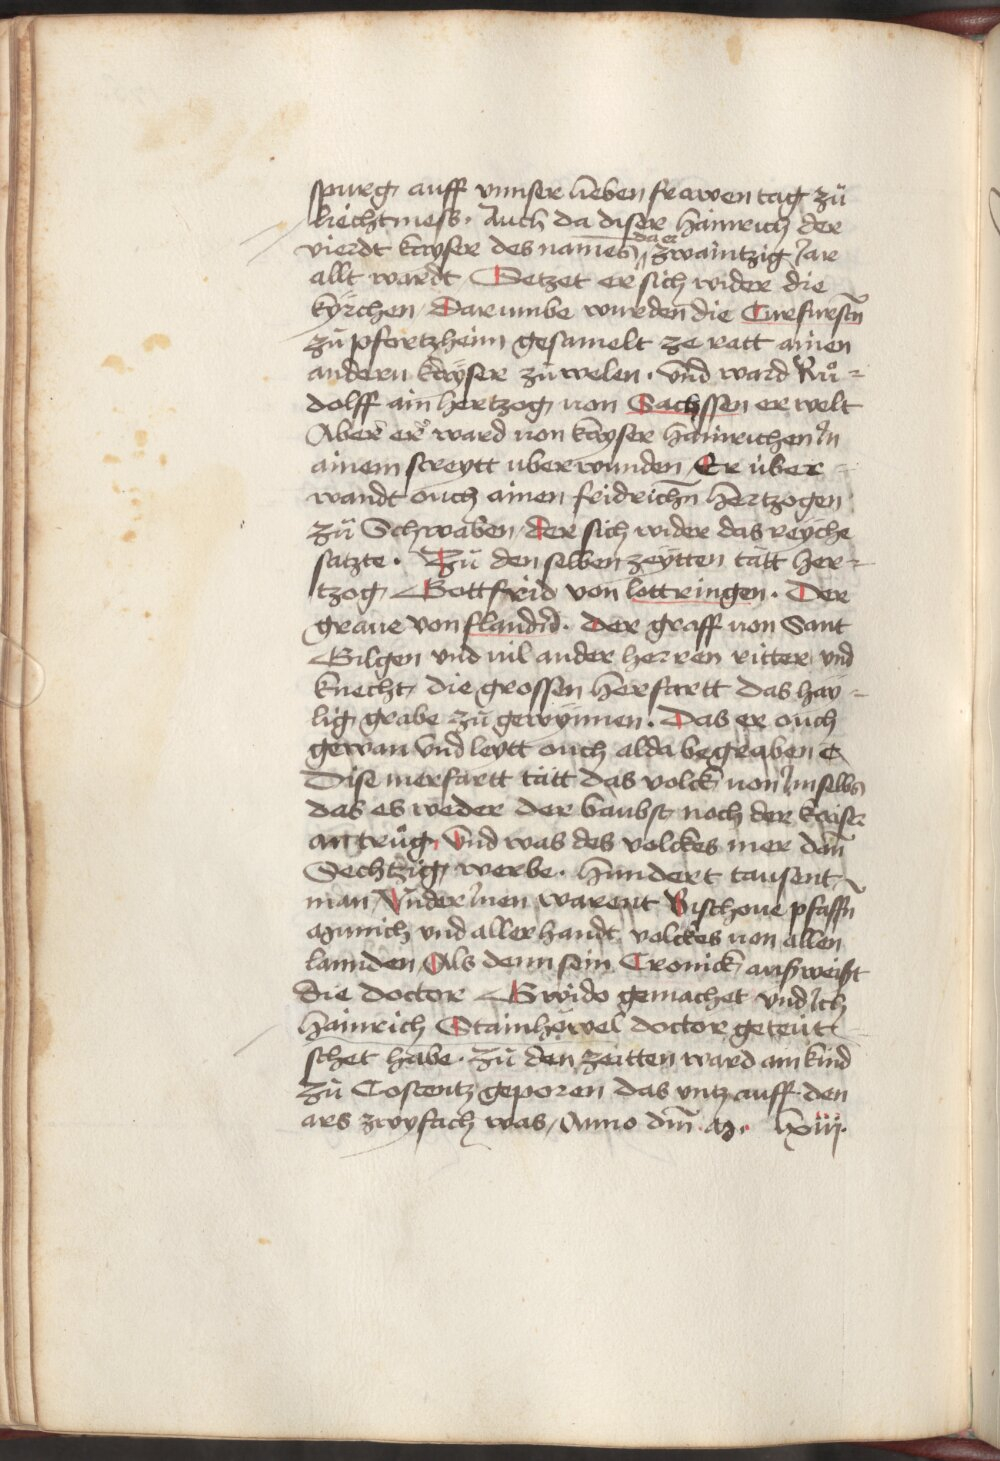 spurg auff vnnser lieben frawen tag zů
liechtmess. Auch da diser Hainrich der
vierdt kayser des names da er zwaintzig Jar
allt wardt Setzet er sich wider die
kyrchen Darumbe wurden die Curfurstn̄
zů pfortzheim gesamelt ze ratt ainen
andern kayser zů welen. vnd ward Rů=
dolff ain hertzog von Sachssen erwelt
Aber er ward von kayser hainrichen In
ainem streytt uberwunden Er über=
wandt ouch ainen fridrichn̄ Hertzogen
zů Schwaben der sich wider das reyche
satzte. Zů den selben zeytten tätt Her=
tzog Gottfrid von lottringen. Der
graue von flandid. Der graff von Sant
Gilgen vnd vil ander herren ritter vnd
knecht die grossen Herfartt das hay=
lig grabe zů gewynnen. Das er ouch
gewan vnd leytt ouch alda begraben
Dise merfartt tätt das volck von Im selbs
das es weder der baubst noch der kaiser
antrůg Vnd was des volckes mer dan̄
Sechtzig werbe. Hundert tausent
man Vnder Inen warent Bischoue pfaffn̄
munich vnd aller handt volckes von allen
lannden Als denn sein Cronick ausweist
die doctor Gwido gemachet vnd Ich
Hainrich Stainhöwel doctor geteütt
schet habe. Zů den zeitten ward ain kind
zů Costentz geporen das vntz auff den
ars zwyfach was Anno dm̄. M. lxiij.